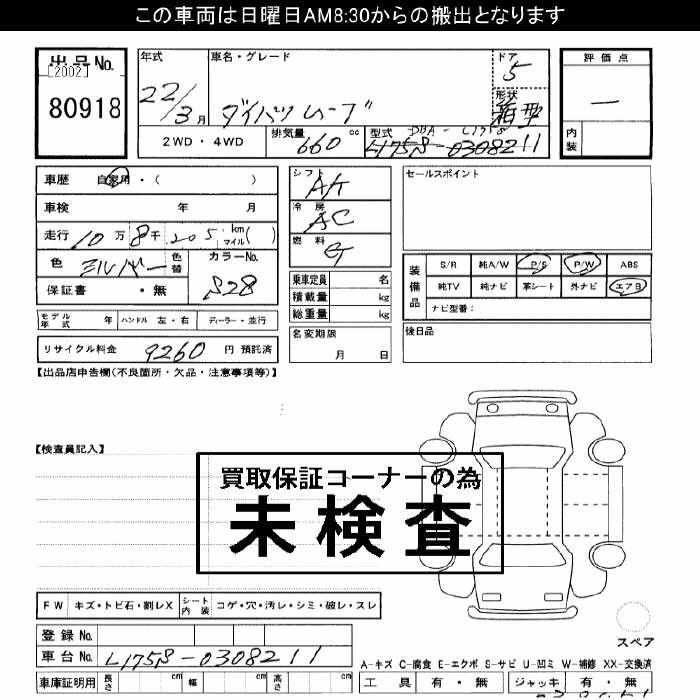 この車両は日曜日AM8:30からの搬出となります
出品No.
[2002]
80918
年式
22/3月
車名・グレード
ダイハツ ムーブ
ドア
5
形状
箱型
評価点
—
内装
2WD・4WD
排気量 660 cc
型式 DBA-L175S
L175S-0308211
車歴 自家用・( )
車検 年 月
走行 10万8千205 km マイル( )
色 シルバー 色替
カラーNo.
S28
保証書 ・無
シフト AT
冷房 AC
燃料 G
乗車定員 名
積載量 kg
総重量 kg
名変期限
月 日
セールスポイント
装備品
S/R 純A/W P/S P/W ABS
純TV 純ナビ 革シート 外ナビ エアB
ナビ型番:
後日品
モデル年式 年 ハンドル 左・右 ディーラー・並行
リサイクル料金 9260 円 預託済
【出品店申告欄(不良箇所・欠品・注意事項等)】
【検査員記入】
買取保証コーナーの為
未検査
FW キズ・トビ石・割レX シート内装 コゲ・穴・汚レ・シミ・破レ・スレ
スペア
登録No.
車台No. L175S-0308211
A-キズ C-腐食 E-エクボ S-サビ U-凹ミ W-補修 XX-交換済
車庫証明用 長さ cm 幅 cm 高さ cm
工具 有・無 ジャッキ 有・無